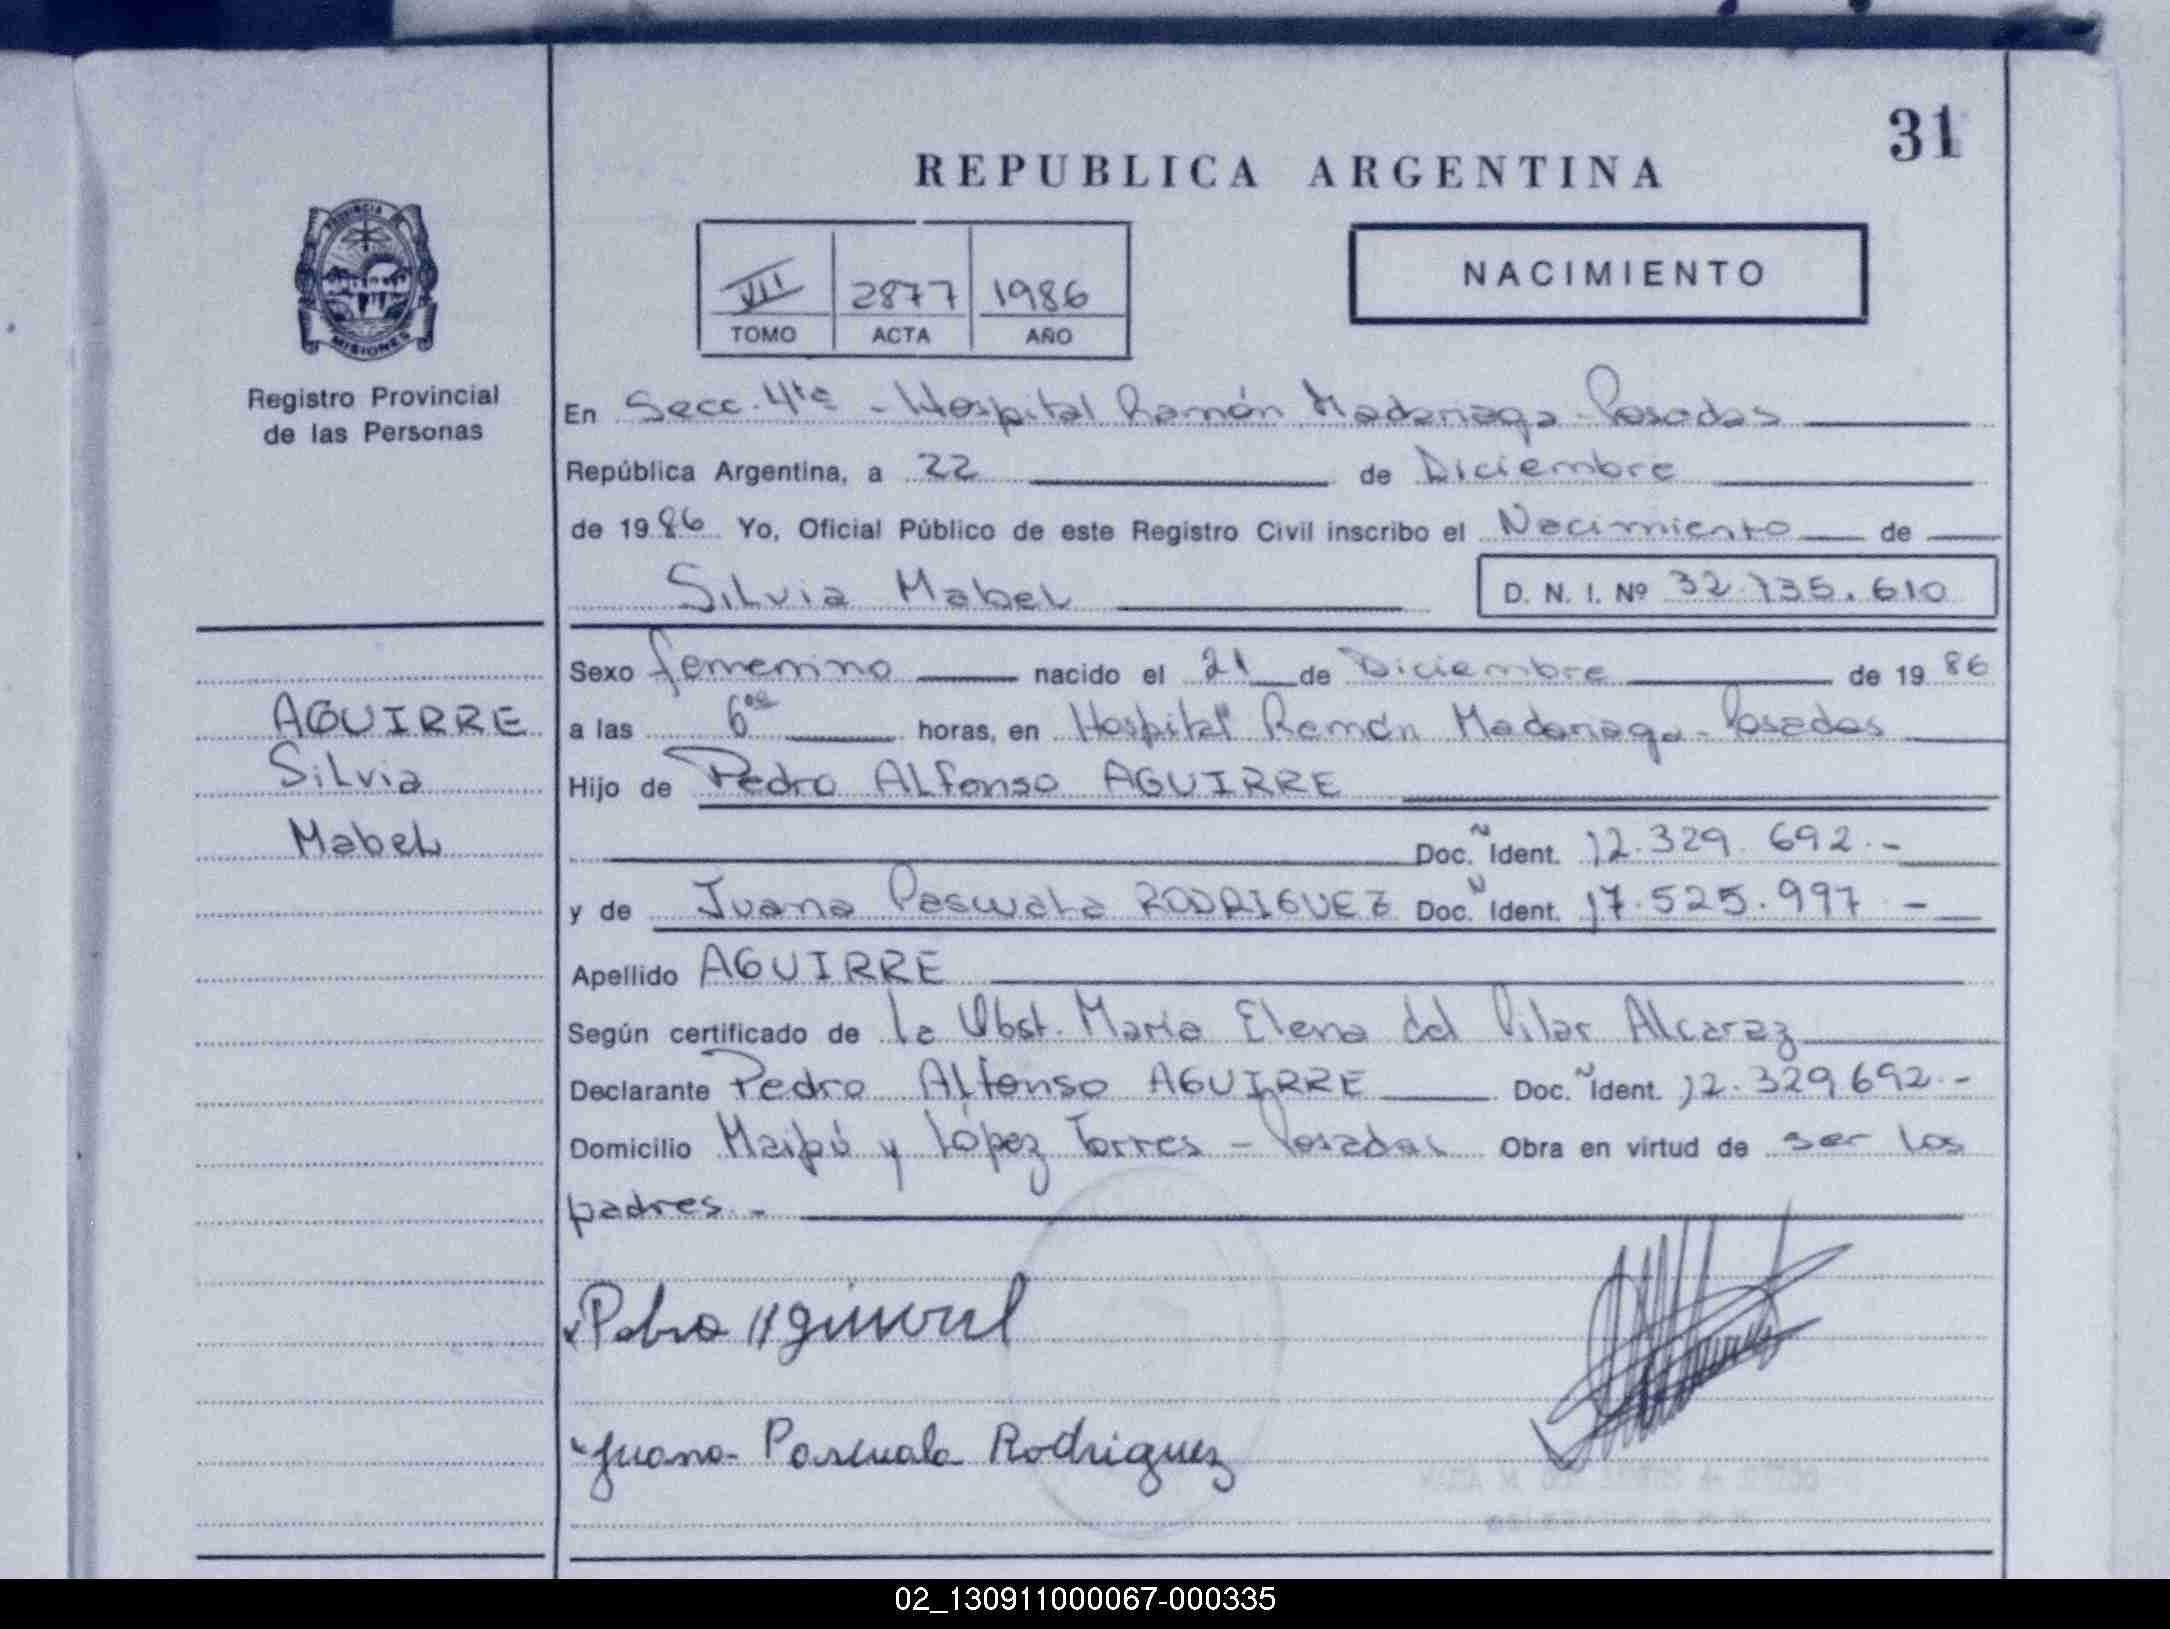 31
REPUBLICA ARGENTINA
PROVINCIA DE
MISIONES
NACIMIENTO
VII 2877 1986
TOMO ACTA AÑO
Registro Provincial
de las Personas
En Secc. 4ta - Hospital Ramón Madariaga - Posadas
República Argentina, a 22 de Diciembre
de 1986 Yo, Oficial Público de este Registro Civil inscribo el Nacimiento de
Silvia Mabel D. N. I. Nº 32.735.610
Sexo femenino nacido el 21 de Diciembre de 1986
AGUIRRE
Silvia
Mabel
a las 6 horas, en Hospital Ramón Madariaga - Posadas
Hijo de Pedro Alfonso AGUIRRE
Doc. Ident. 12.329.692.-
y de Juana Pascuala RODRIGUEZ Doc. Ident. 17.525.997 -
Apellido AGUIRRE
Según certificado de la Obst. María Elena del Pilar Alcaraz
Declarante Pedro Alfonso AGUIRRE Doc. Ident. 12.329.692.-
Domicilio Maipú y López Torres - Posadas Obra en virtud de ser los
padres.-
Juana Pascuala Rodriguez
02_130911000067-000335